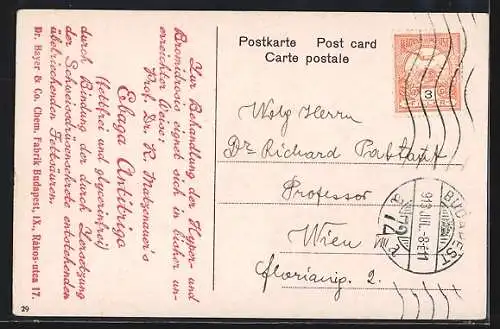 Zur Behandlung der Hyper- und
Bromidrosis eignet sich in bisher un-
erreichter Weise:
Prof. Dr. R. Matzenauer's
Erbaga Antibriga
(fettfrei und glycerinfrei)
durch Bindung der durch Zersetzung
der Schweissdrüsensekrete entstehenden
übelriechenden Fettsäuren.
Dr. Bayer & Co. Chem. Fabrik Budapest, IX., Rákos-utca 17.
29
Postkarte Post card
Carte postale
3
Wolg Herrn
Dr Richard
Professor
Wien
Florianig. 2.
BUDAPEST
913 JUL. -8